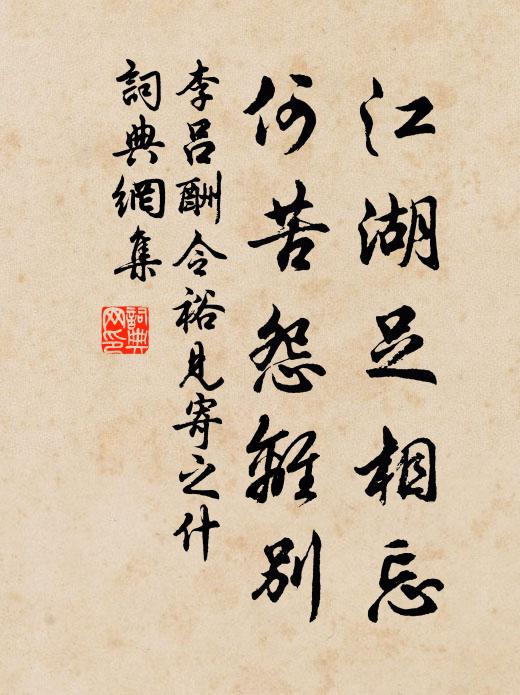 江湖足相忘
何苦怨離別
李呂酬令裕見寄之什
詞典網集
詞典网印